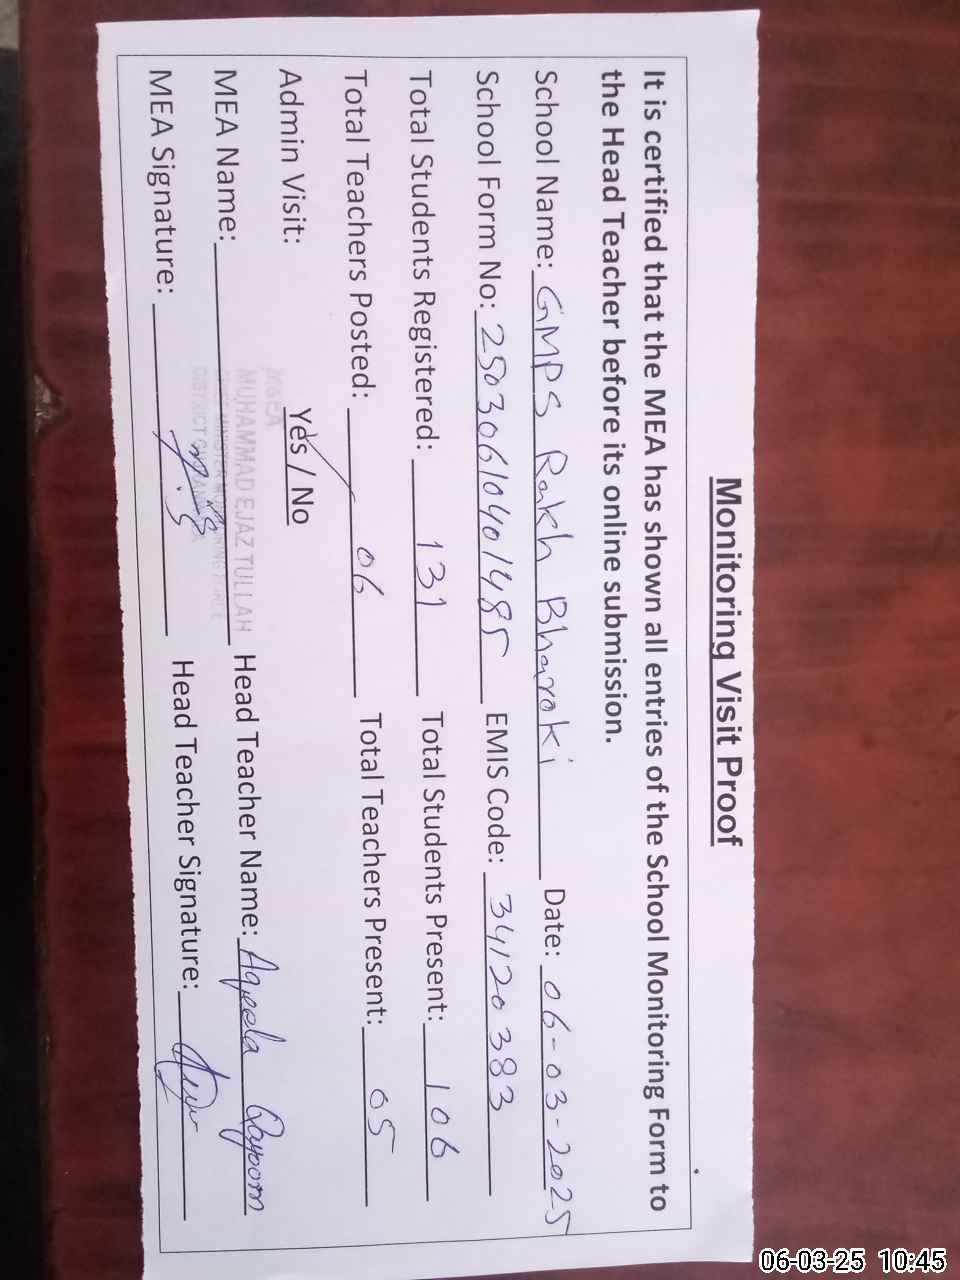 Monitoring Visit Proof
It is certified that the MEA has shown all entries of the School Monitoring Form to
the Head Teacher before its online submission.
School Name: GMPS Rakh Bharoki Date: 06-03-2025
School Form No: 25030610401485 EMIS Code: 34120383
Total Students Registered: 131 Total Students Present: 106
Total Teachers Posted: 06 Total Teachers Present: 05
Admin Visit: Yes / No
MEA Name: MUHAMMAD EJAZ TULLAH Head Teacher Name: Aqeela Qayoom
MEA Signature: Head Teacher Signature:
06-03-25 10:45